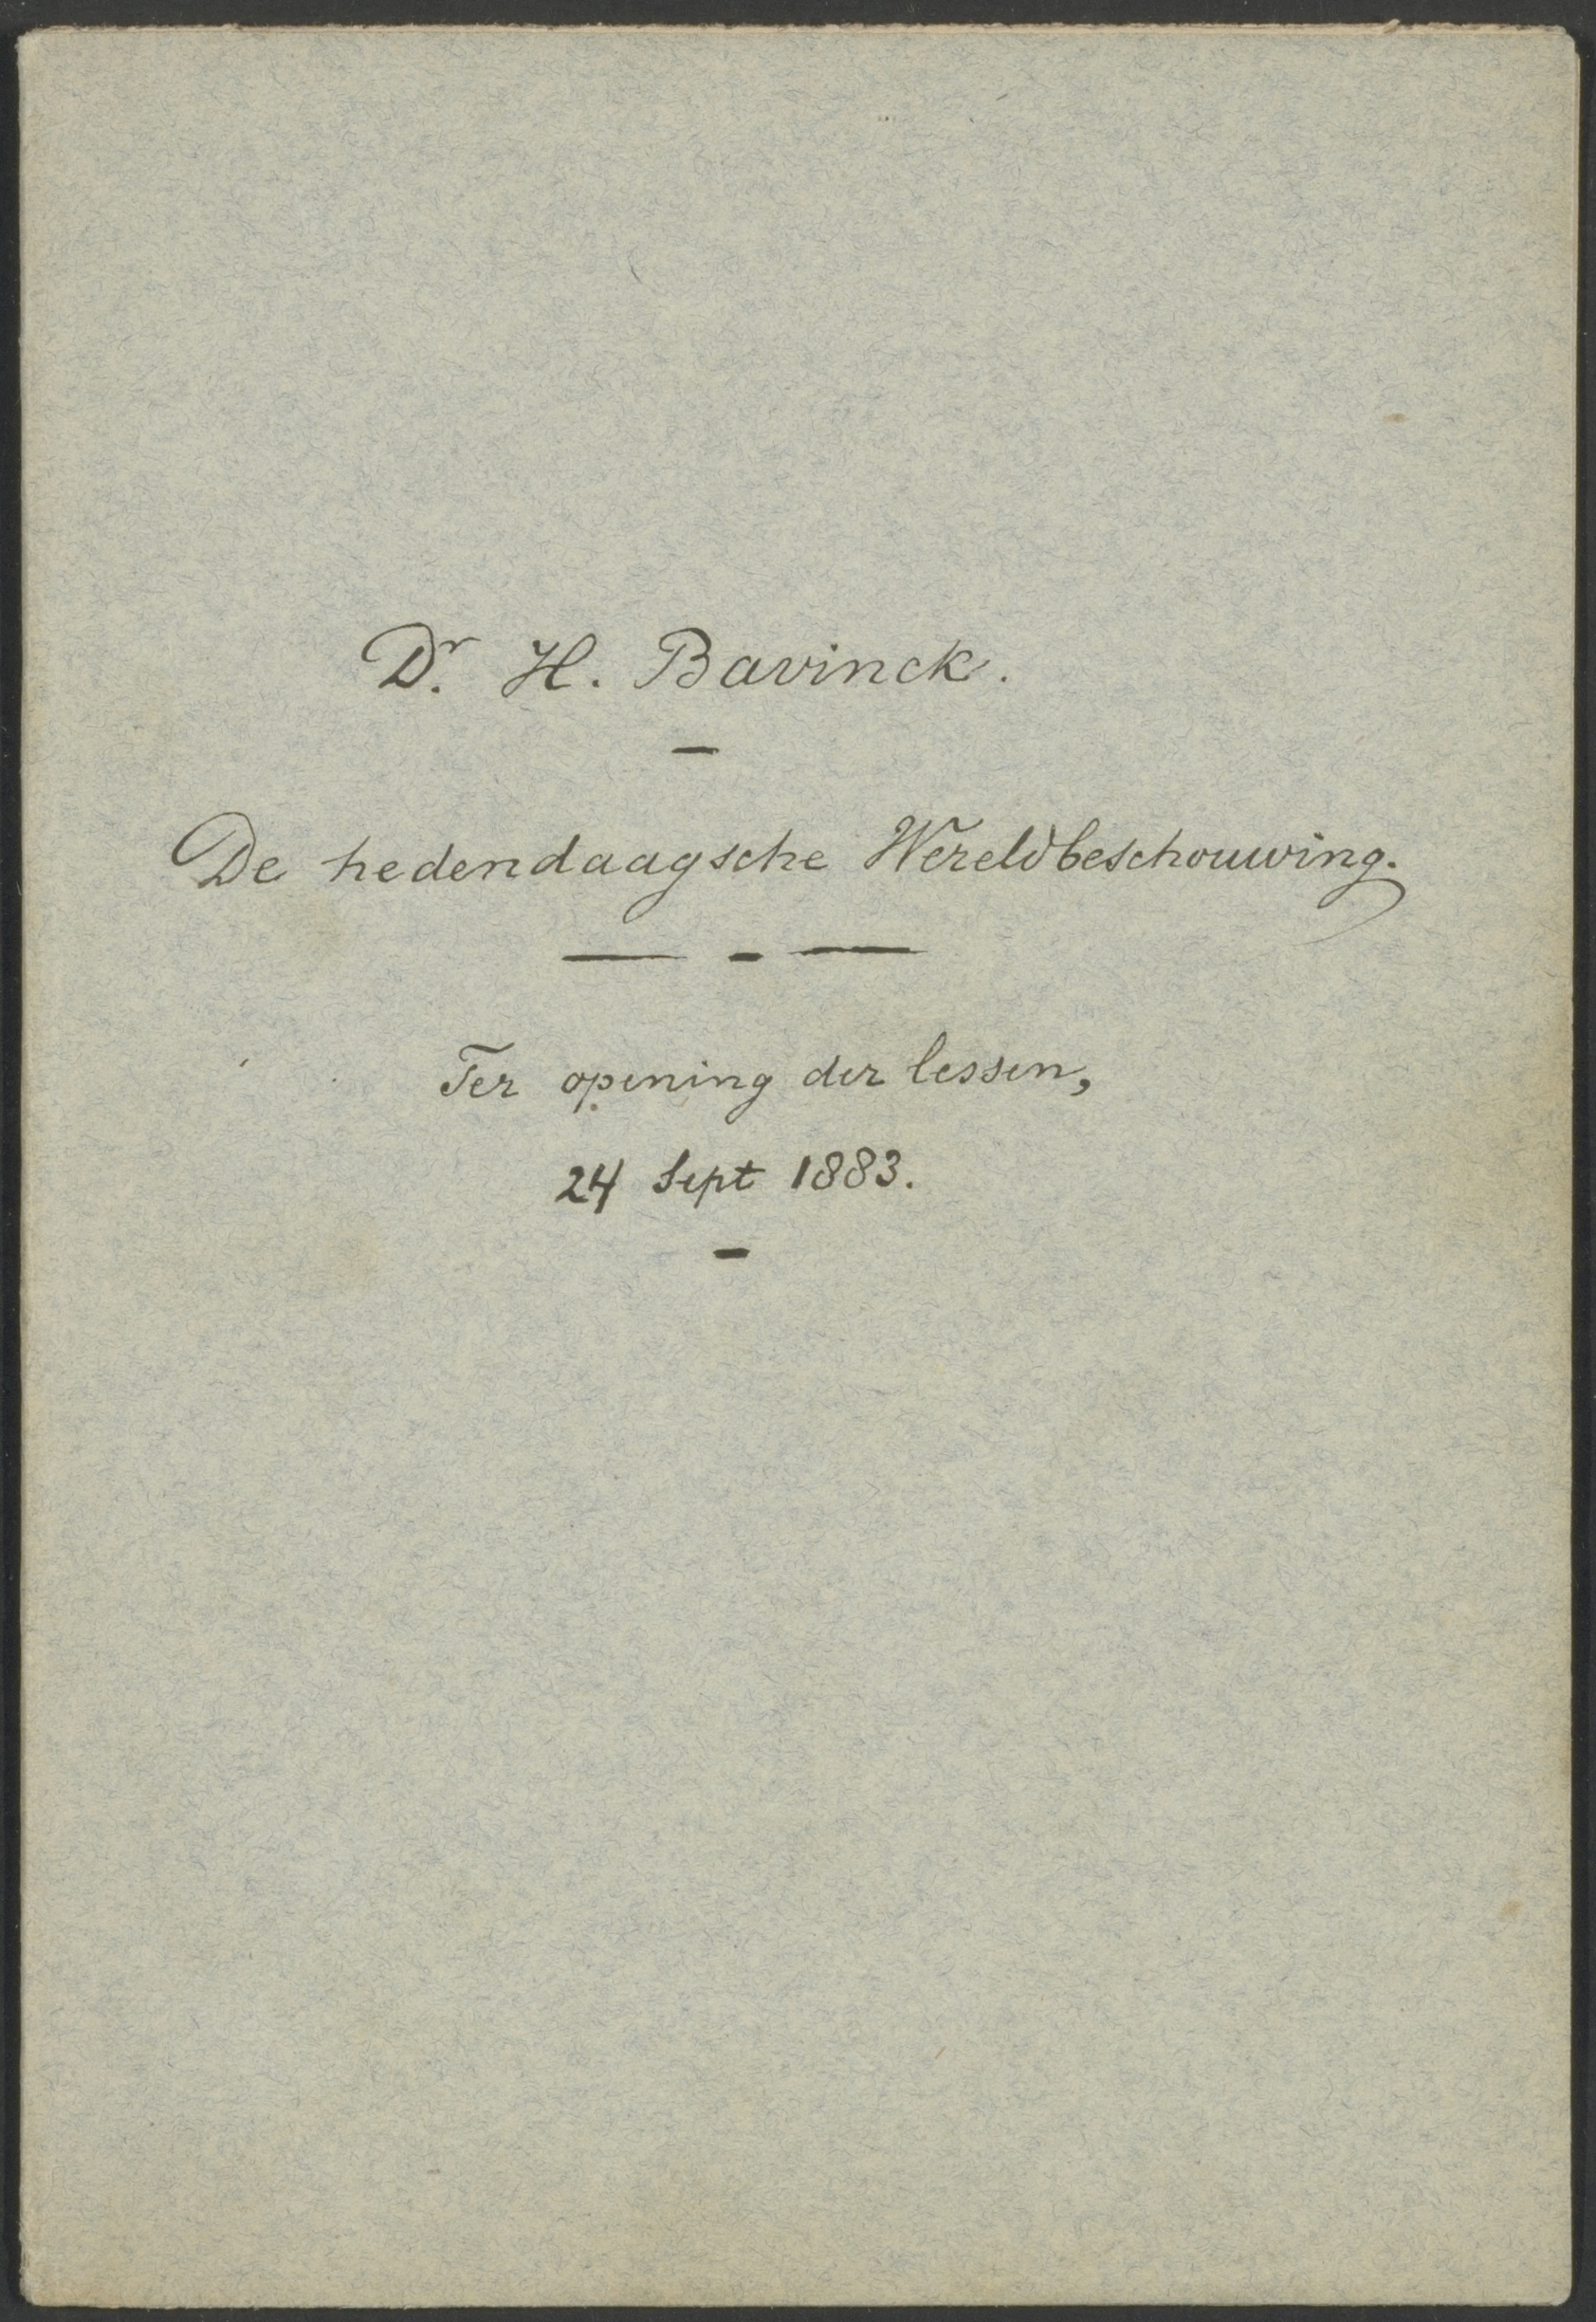 Dr. H. Bavinck.
—
De hedendaagsche Wereldbeschouwing.
— - —
Ter opening der lessen,
24 Sept 1883.
-